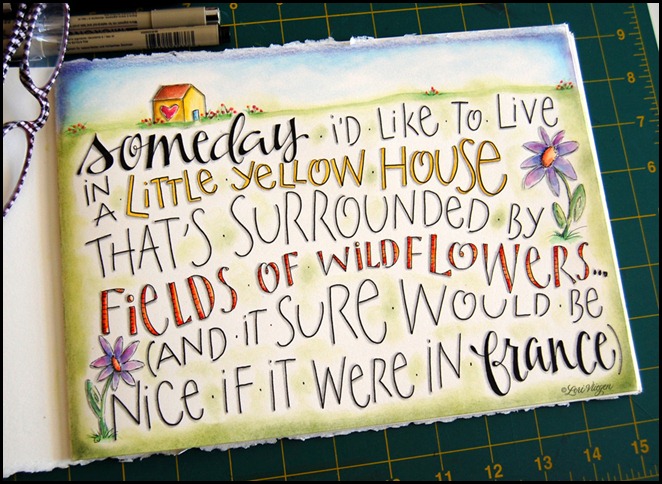 someday i'd Like To Live
IN A Little Yellow House
THAT'S SURROUNDED by
Fields of wildflowers...
(AND it SURE WOULD BE
NICE IF IT WERE IN france)
© Lori Vliegen
9
8
7
6
5
8
9
10
11
12
13
14
15